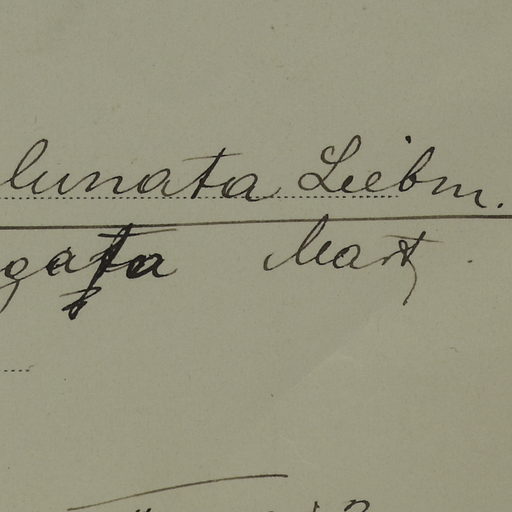 lunata Liebm.
gata Mart.